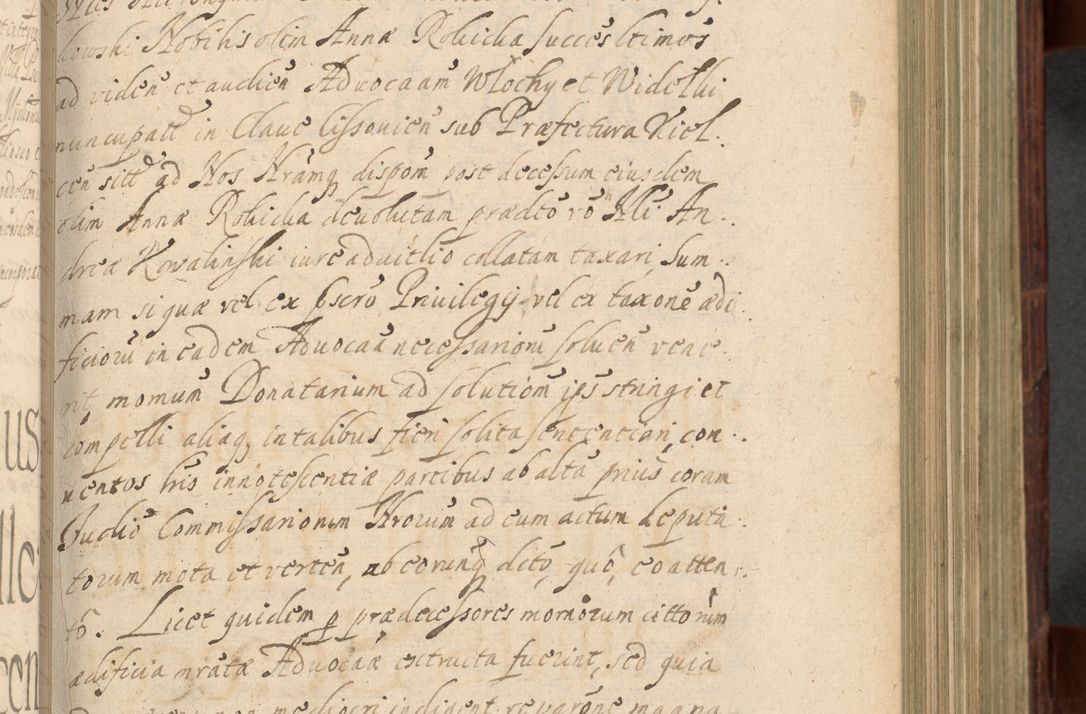 kowski Nobilis olim Annæ Rokicka succes ltimos
ad viden et audien Advocaam Włochy et Widełki
nuncupatt in Clave Lissovien sub Præfectura Kiel.
cen sitt ad Nos Nramq dispom post decessum eiusdem
olim Annæ Rokicka devolutam prædto vo Nli An.
dreæ Kowalinski iure advitlio collatam taxari, Sum.
mam si quæ vel ex pscro Privilegij vel ex taxone ædi.
ficioru in eadem Advocaa necessariom solven vene.
rit, momum Donatarium ad solutiom ips stringi et
compelli aliaq in talibus fieri solita sententiari, con.
ventos hris innotescentiæ partibus ab alta prius coram
Judio Commissariorum Nrorum ad eum actum deputa.
torum mota et verten, ab eorunq dcto, quo, eo atten.
to. Licet quidem p prædecessores mornorum cittorum
ædificia mratæ Advocaæ extructa fuerint, sed quia
mediocri indigent reparone magna